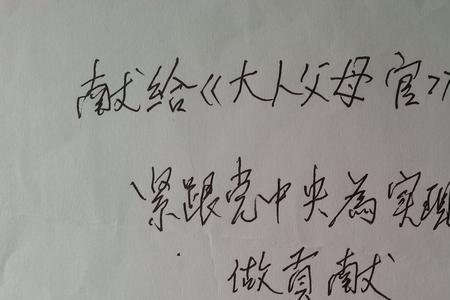 献给《大人父母官》
紧跟党中央為实现
做贡献